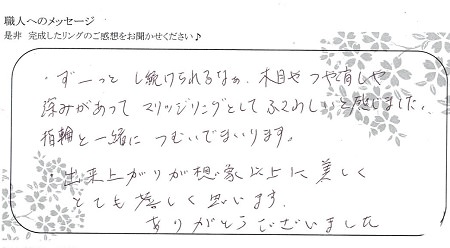 職人へのメッセージ
是非 完成したリングのご感想をお聞かせください♪
・ずーっと し続けられるなぁ、木目やつや消しや
深みがあって マリッジリングとして ふさわしいと感じました。
指輪と一緒に つむいでまいります。
・出来上がりが想像以上に美しく
とても嬉しく思います。
ありがとうございました